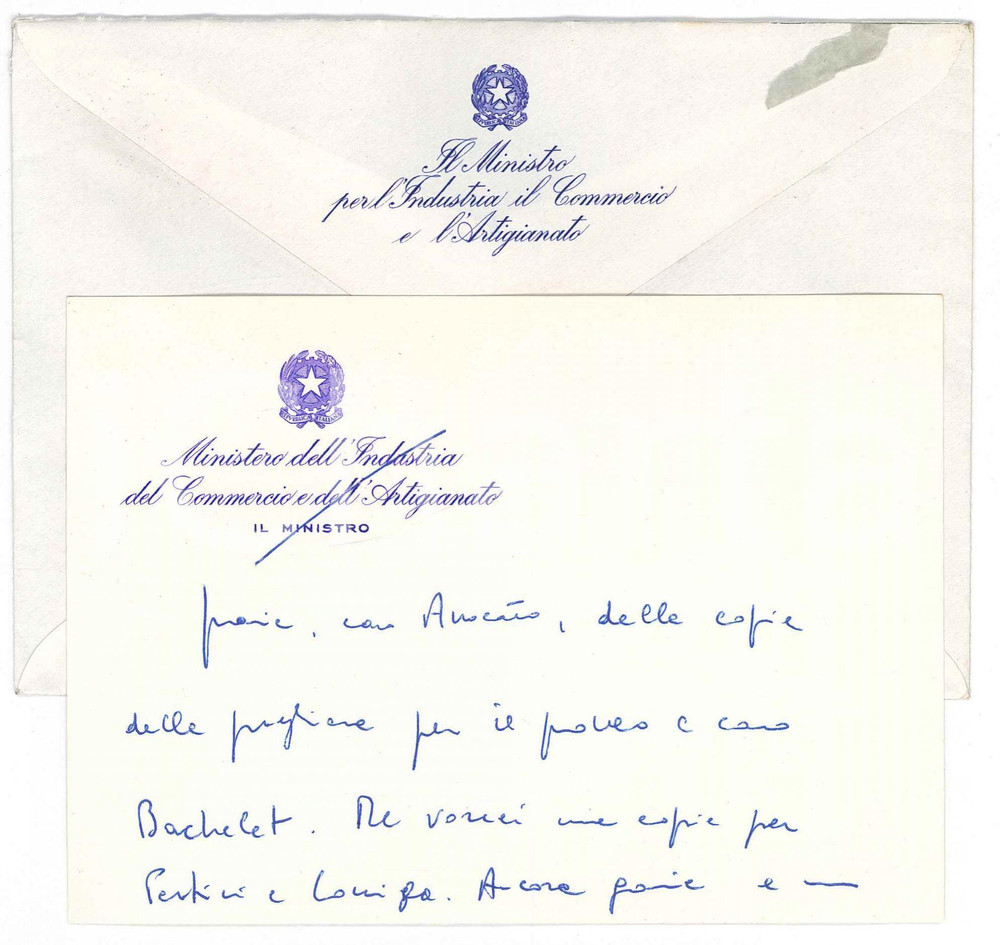 REPVBBLICA ITALIANA
Il Ministro
per l'Industria il Commercio
e l'Artigianato
REPVBBLICA ITALIANA
Ministero dell'Industria
del Commercio e dell'Artigianato
IL MINISTRO
grazie, caro Avvocato, delle copie
delle preghiere per il povero e caro
Bachelet. Ne vorrei una copia per
Pertini e Cossiga. Ancora grazie e un